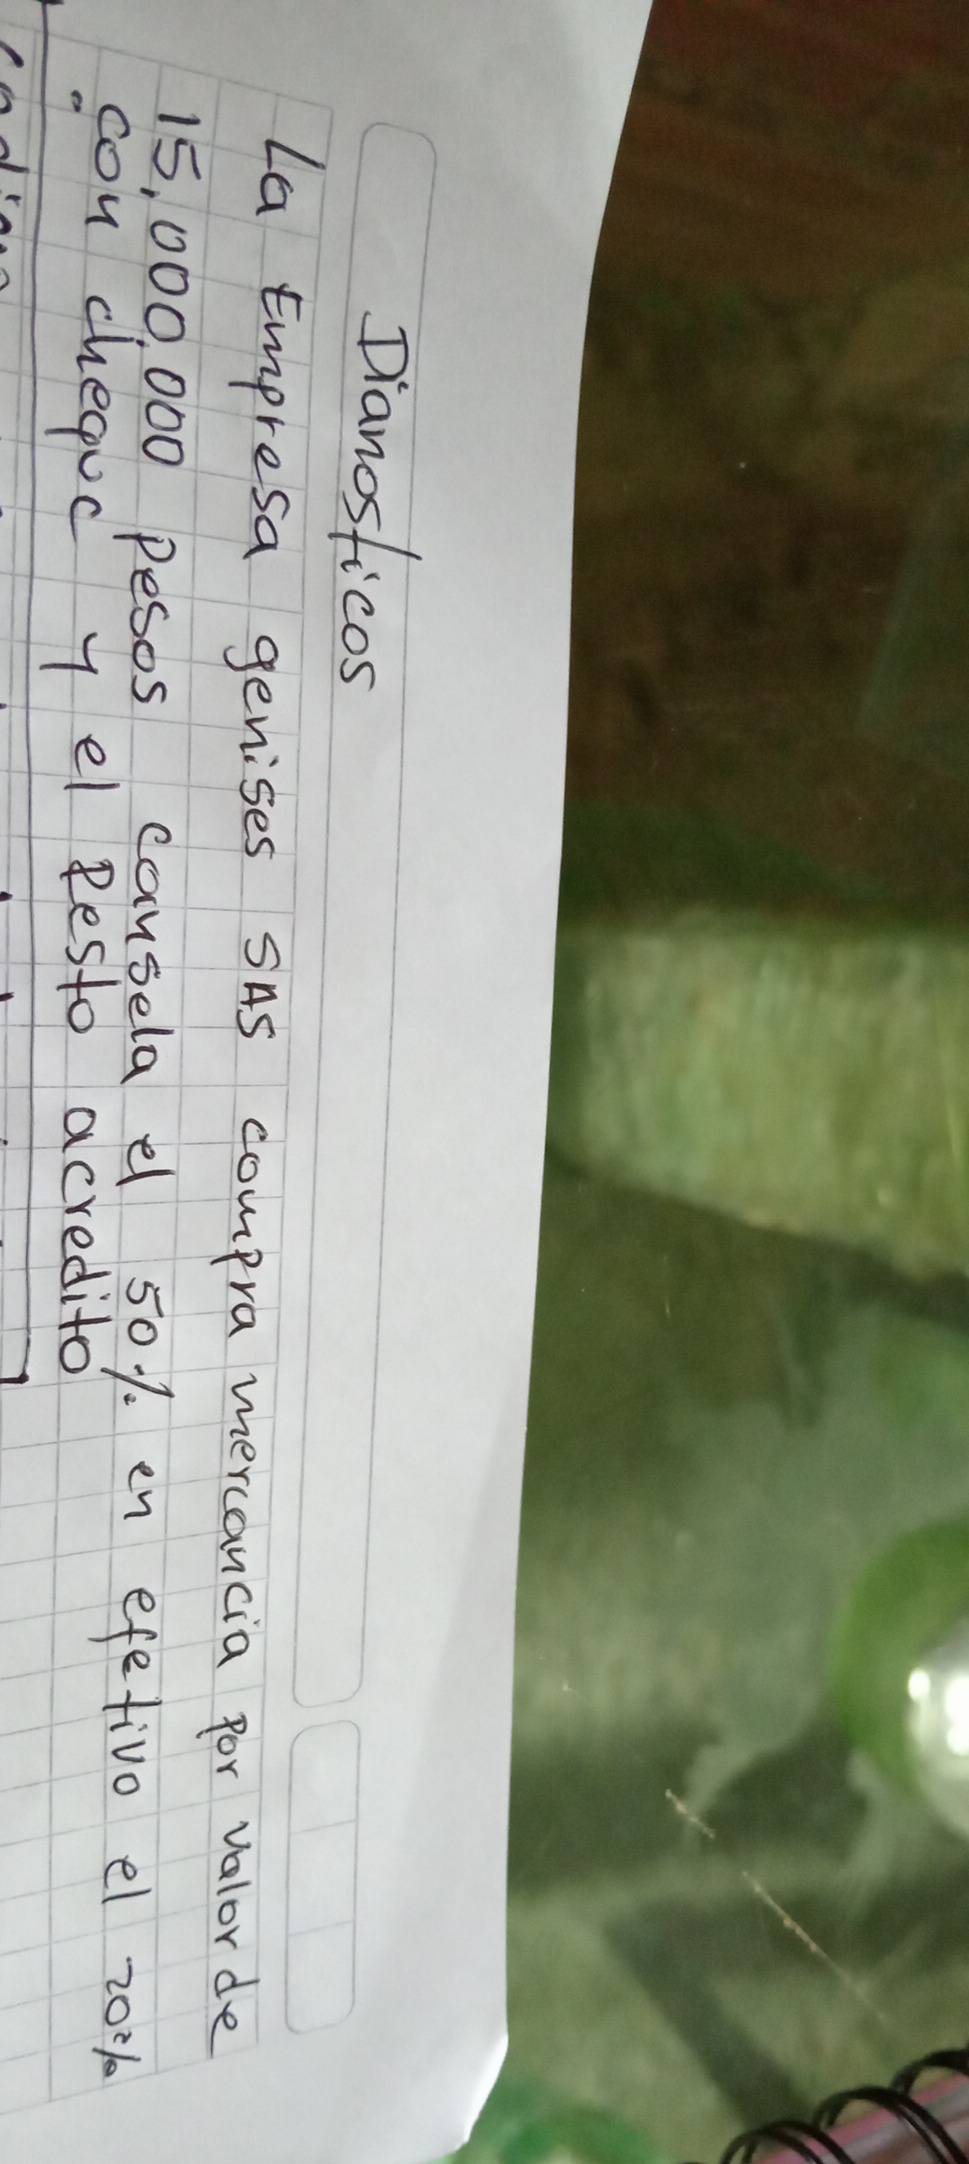 Dianosticos
La Empresa genises SAS compra mercancia por valor de
15,000,000 pesos cansela el 50% en efetivo el 20%
con cheque y el Resto acredito